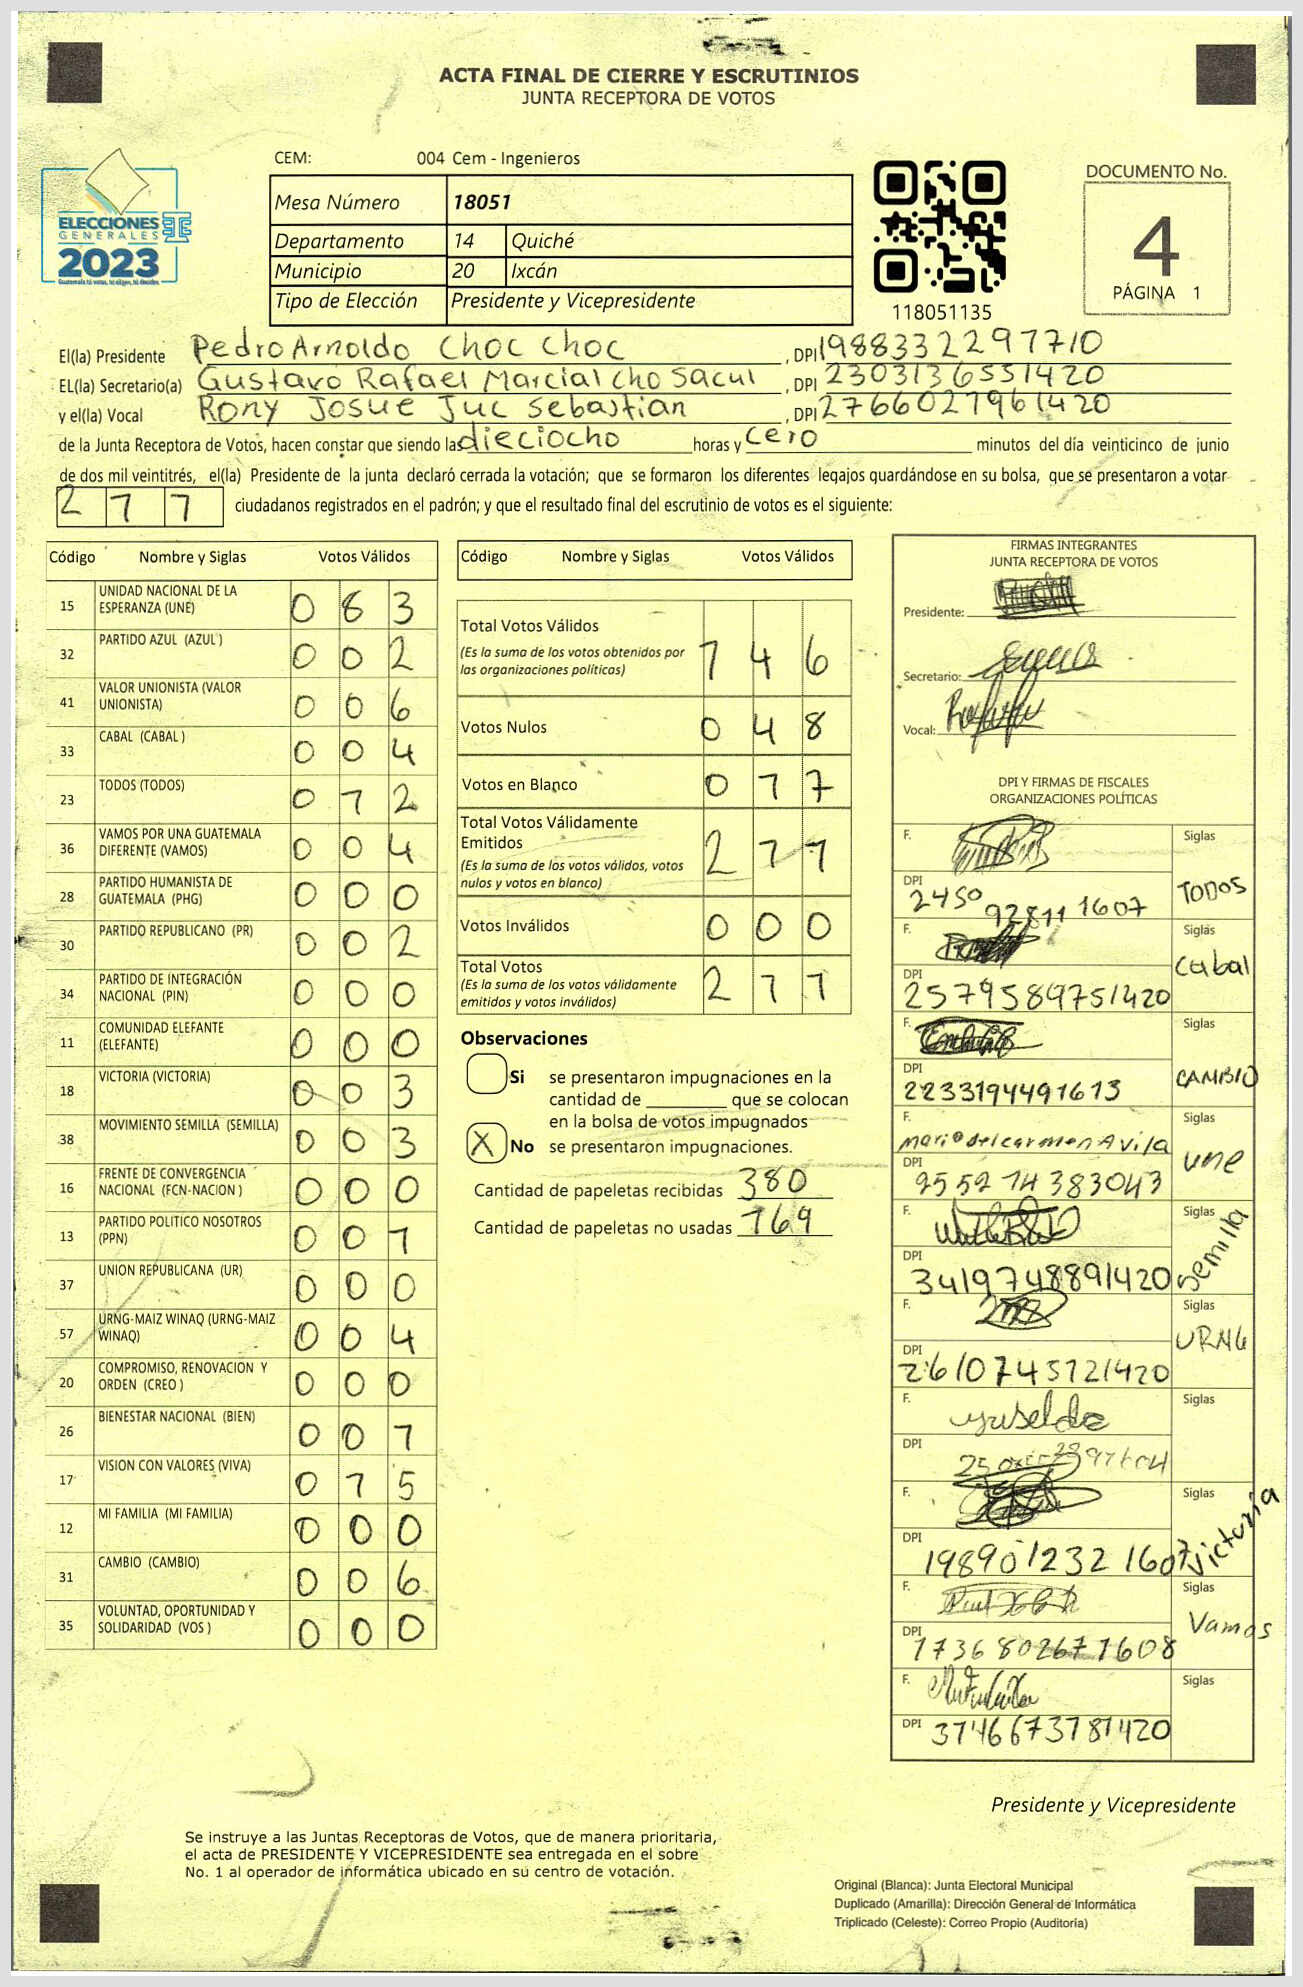 ACTA FINAL DE CIERRE Y ESCRUTINIOS
JUNTA RECEPTORA DE VOTOS
CEM: 004 Cem - Ingenieros
ELECCIONES
GENERALES
2023
Mesa Número 18051
Departamento 14 Quiché
Municipio 20 Ixcán
Tipo de Elección Presidente y Vicepresidente
118051135
DOCUMENTO No.
4
PÁGINA 1
El(la) Presidente Pedro Arnoldo Choc Choc, DPI 1988332297710
EL(la) Secretario(a) Gustavo Rafael Marcial Cho Sacul, DPI 2303136551420
y el(la) Vocal Rony Josue Juc Sebastian, DPI 2766027961420
de la Junta Receptora de Votos, hacen constar que siendo las dieciocho horas y cero minutos del día veinticinco de junio
de dos mil veintitrés, el(la) Presidente de la junta declaró cerrada la votación; que se formaron los diferentes legajos guardándose en su bolsa, que se presentaron a votar
2 1 1 ciudadanos registrados en el padrón; y que el resultado final del escrutinio de votos es el siguiente:
Código Nombre y Siglas Votos Válidos
15 UNIDAD NACIONAL DE LA
ESPERANZA (UNE) 0 8 3
32 PARTIDO AZUL (AZUL ) 0 0 2
41 VALOR UNIONISTA (VALOR
UNIONISTA) 0 0 6
33 CABAL (CABAL ) 0 0 4
23 TODOS (TODOS) 0 1 2
36 VAMOS POR UNA GUATEMALA
DIFERENTE (VAMOS) 0 0 4
28 PARTIDO HUMANISTA DE
GUATEMALA (PHG) 0 0 0
30 PARTIDO REPUBLICANO (PR) 0 0 2
34 PARTIDO DE INTEGRACIÓN
NACIONAL (PIN) 0 0 0
11 COMUNIDAD ELEFANTE
(ELEFANTE) 0 0 0
18 VICTORIA (VICTORIA) 0 0 3
38 MOVIMIENTO SEMILLA (SEMILLA) 0 0 3
16 FRENTE DE CONVERGENCIA
NACIONAL (FCN-NACION ) 0 0 0
13 PARTIDO POLITICO NOSOTROS
(PPN) 0 0 1
37 UNION REPUBLICANA (UR) 0 0 0
57 URNG-MAIZ WINAQ (URNG-MAIZ
WINAQ) 0 0 4
20 COMPROMISO, RENOVACION Y
ORDEN (CREO ) 0 0 0
26 BIENESTAR NACIONAL (BIEN) 0 0 1
17 VISION CON VALORES (VIVA) 0 1 5
12 MI FAMILIA (MI FAMILIA) 0 0 0
31 CAMBIO (CAMBIO) 0 0 6
35 VOLUNTAD, OPORTUNIDAD Y
SOLIDARIDAD (VOS ) 0 0 0
Código Nombre y Siglas Votos Válidos
Total Votos Válidos 1 4 6
(Es la suma de los votos obtenidos por
las organizaciones políticas)
Votos Nulos 0 4 8
Votos en Blanco 0 1 7
Total Votos Válidamente
Emitidos 2 1 1
(Es la suma de los votos válidos, votos
nulos y votos en blanco)
Votos Inválidos 0 0 0
Total Votos 2 1 1
(Es la suma de los votos válidamente
emitidos y votos inválidos)
Observaciones
Si se presentaron impugnaciones en la
cantidad de ________ que se colocan
en la bolsa de votos impugnados
X No se presentaron impugnaciones.
Cantidad de papeletas recibidas 380
Cantidad de papeletas no usadas 169
FIRMAS INTEGRANTES
JUNTA RECEPTORA DE VOTOS
Presidente:
Secretario:
Vocal:
DPI Y FIRMAS DE FISCALES
ORGANIZACIONES POLÍTICAS
F. Siglas
TODOS
DPI 2450 92811 1607
F. Siglas
Cabal
DPI 2579589751420
F. Siglas
CAMBIO
DPI 2233194491613
F. Maria del carmen Avila Siglas
une
DPI 2552 14 383043
F. Siglas
Semilla
DPI 3419748891420
F. Siglas
URNG
DPI 2610745721420
F. Griselda Siglas
DPI
F. Siglas
Victoria
DPI 198901232 1607
F. Siglas
Vamos
DPI 1736802671608
F. Siglas
DPI 3746673781420
Presidente y Vicepresidente
Se instruye a las Juntas Receptoras de Votos, que de manera prioritaria,
el acta de PRESIDENTE Y VICEPRESIDENTE sea entregada en el sobre
No. 1 al operador de informática ubicado en su centro de votación.
Original (Blanca): Junta Electoral Municipal
Duplicado (Amarilla): Dirección General de Informática
Triplicado (Celeste): Correo Propio (Auditoría)